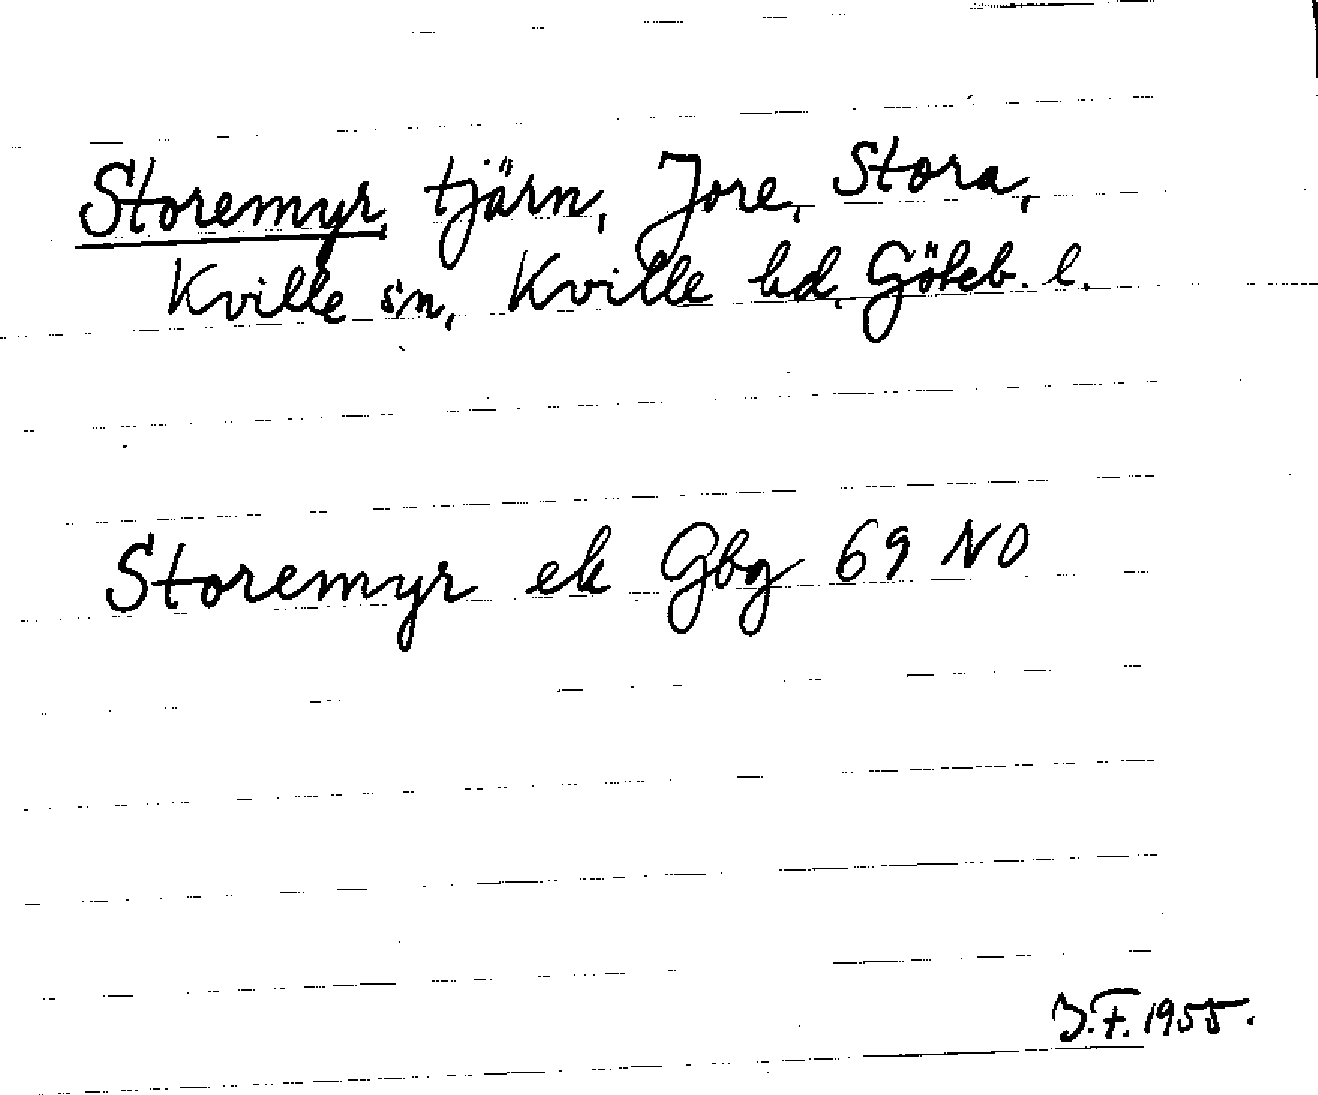 Storemyr, tjärn, Jore, Stora,
Kville sn, Kville hd, Göteb. l.
Storemyr ek Gbg 69 NO
J.F. 1955.